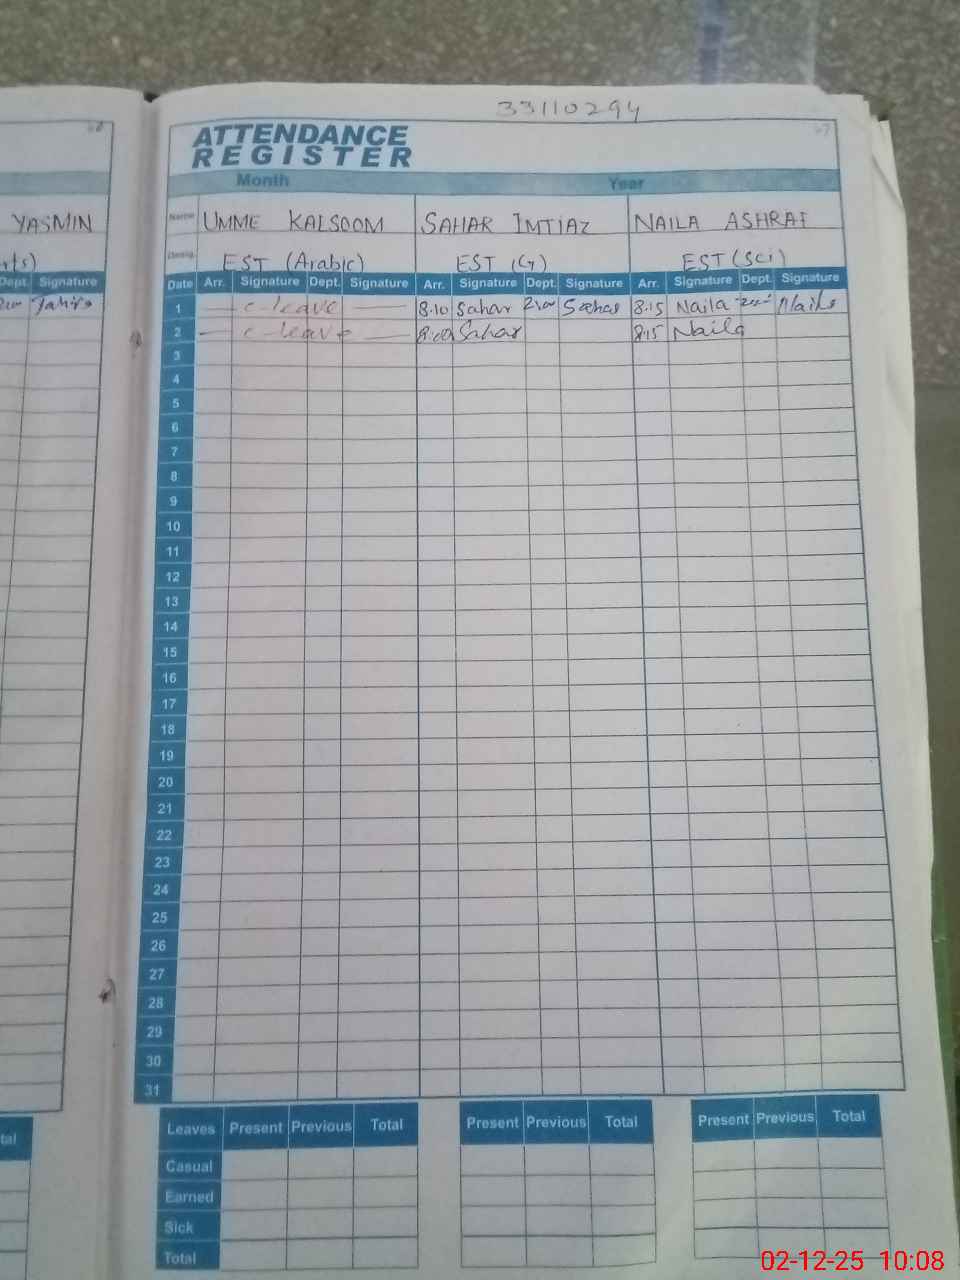 33110294
68
67
ATTENDANCE
REGISTER
Month Year
YASMIN
Name UMME KALSOOM SAHAR IMTIAZ NAILA ASHRAF
Desig. EST (Arabic) EST (G) EST (Sci)
Dept. Signature
Date Arr. Signature Dept. Signature Arr. Signature Dept. Signature Arr. Signature Dept. Signature
1 — c-leave — 8.10 Sahar 2:00 Sahar 8.15 Naila 2:00 Naila
2 — c-leave — 8:00 Sahar 8.15 Naila
3
4
5
6
7
8
9
10
11
12
13
14
15
16
17
18
19
20
21
22
23
24
25
26
27
28
29
30
31
tal
Leaves Present Previous Total Present Previous Total Present Previous Total
Casual
Earned
Sick
Total
02-12-25 10:08